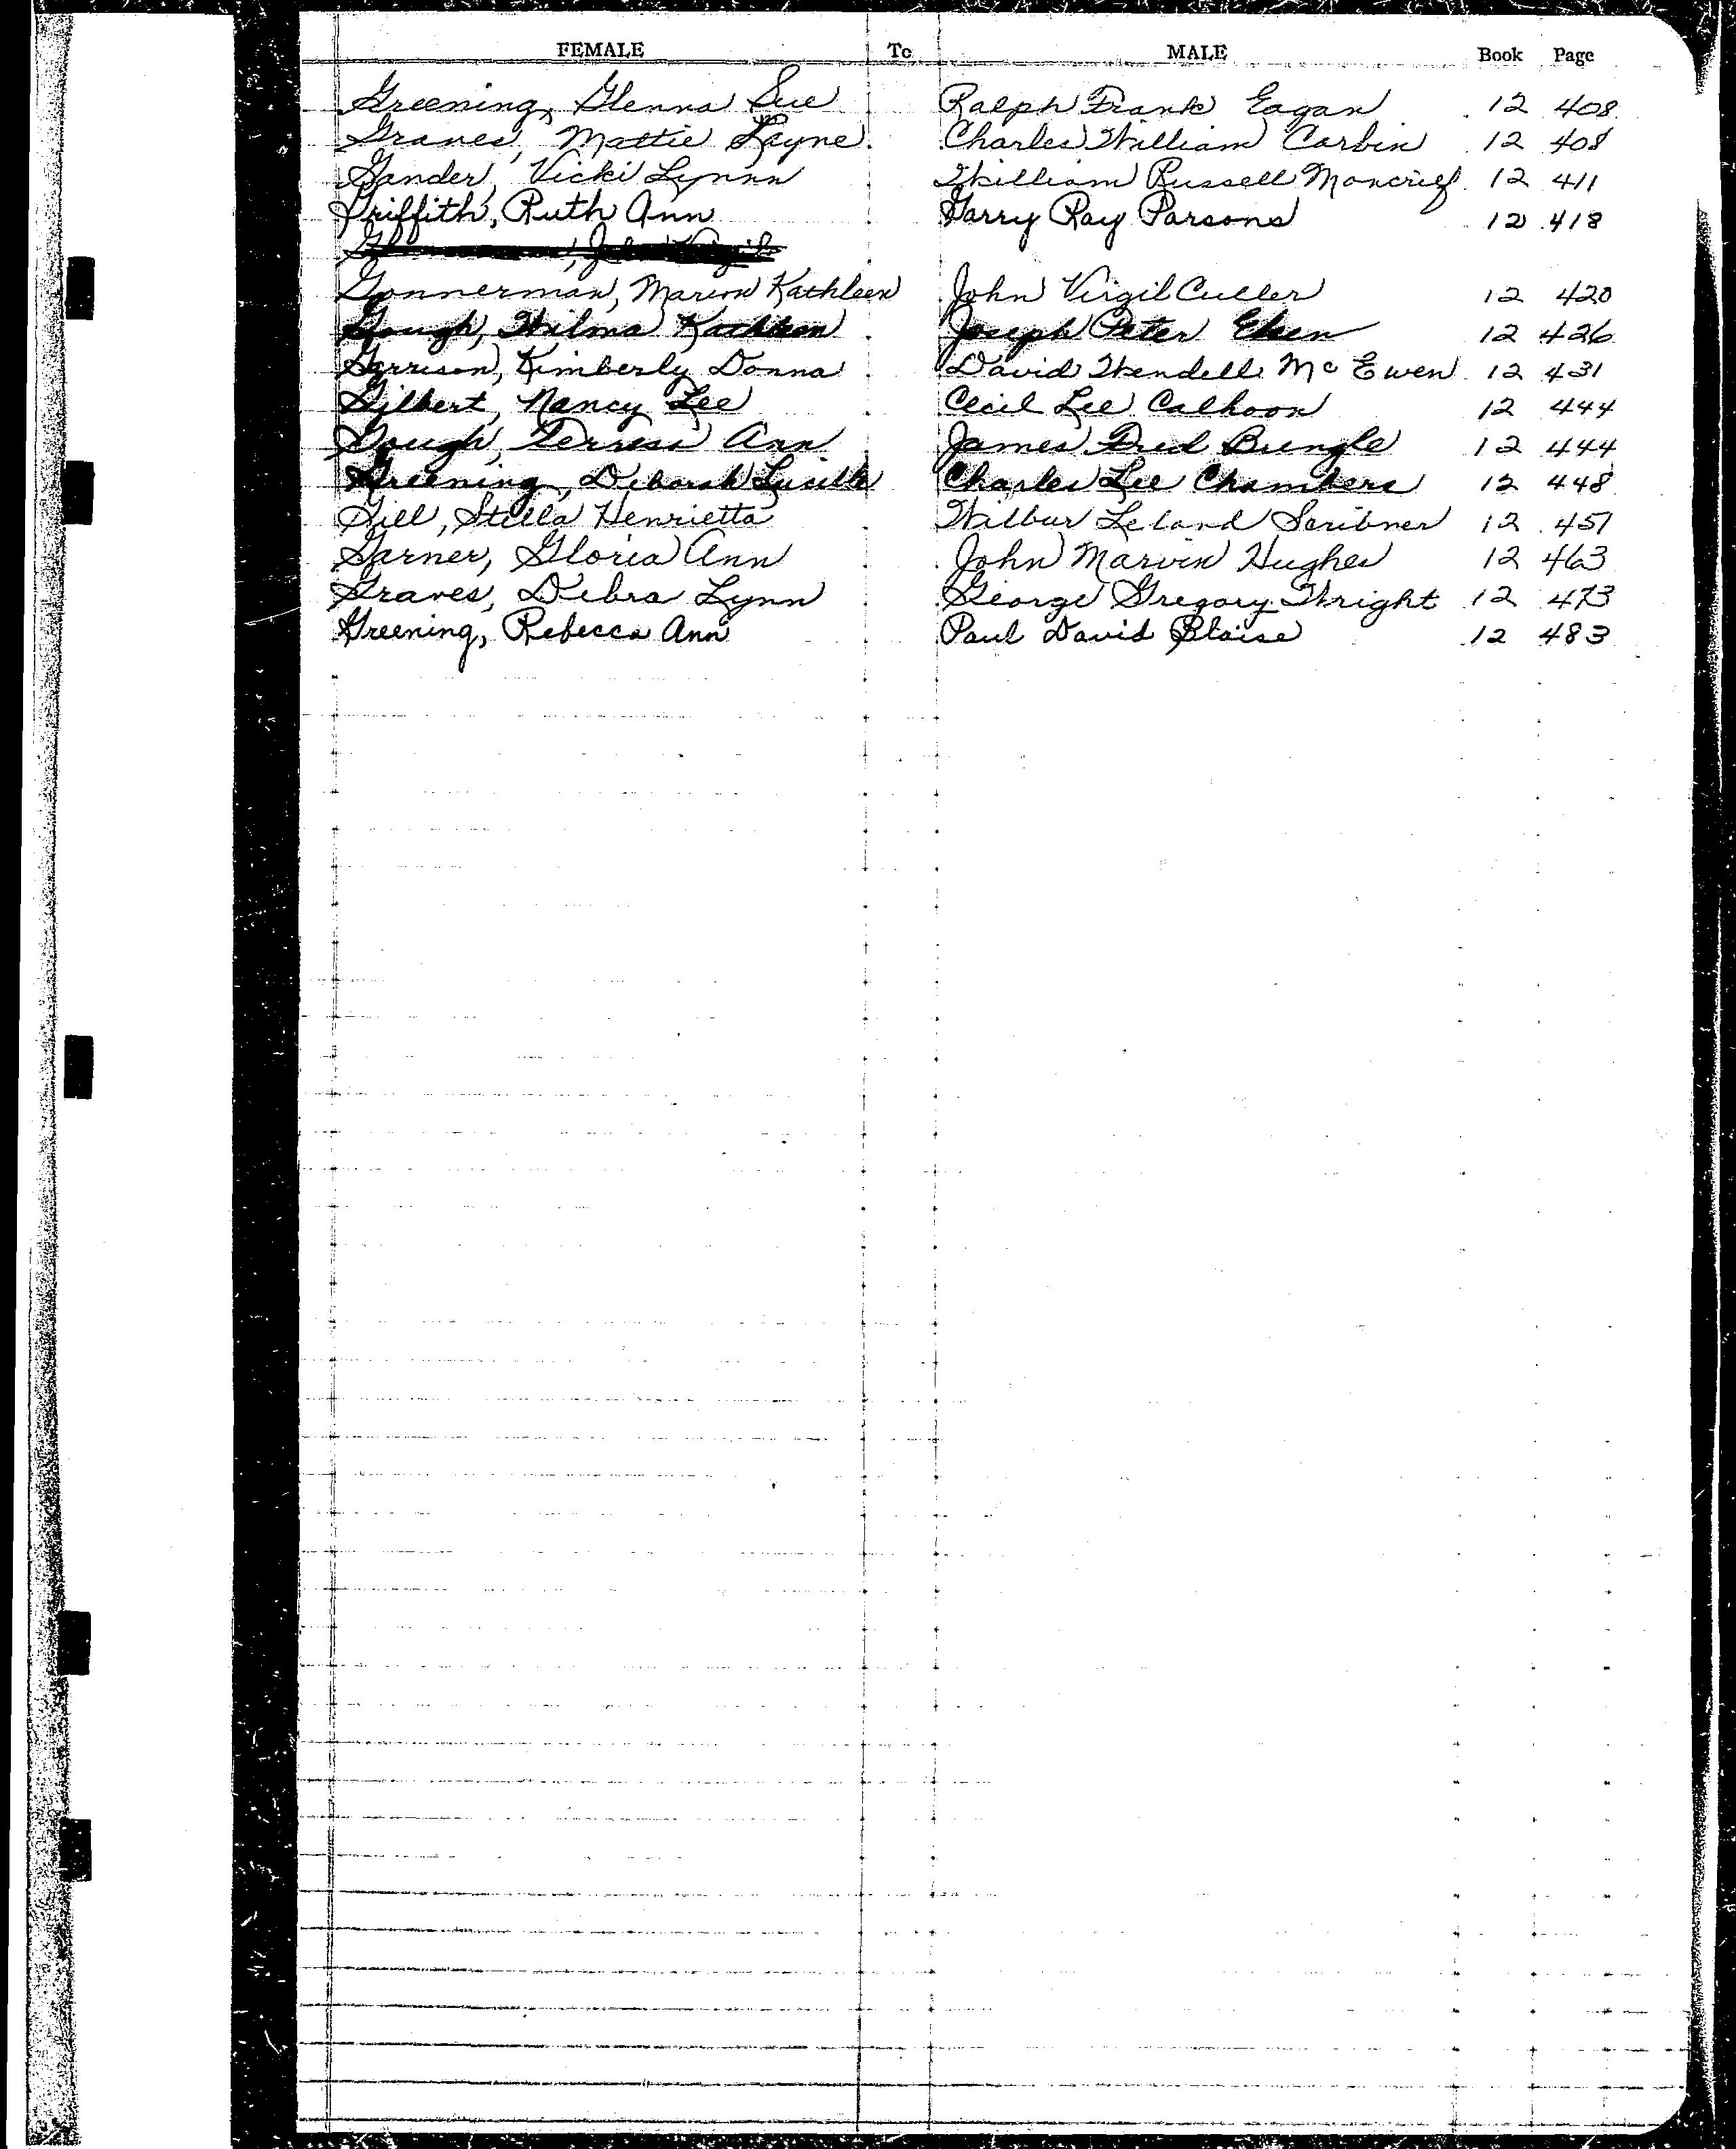 FEMALE To MALE Book Page
Greening, Glenna Sue Ralph Frank Eagan 12 408
Graves, Mattie Layne Charles William Corbin 12 408
Gander, Vicki Lynnn William Russell Moncrief 12 411
Griffith, Ruth Ann Garry Ray Parsons 12 418
Gonnerman, Marion Kathleen John Virgil Culler 12 420
Gough, Wilma Kathleen Joseph Peter 12 426
Garrison, Kimberly Donna David Wendell Mc Ewen 12 431
Gilbert, Nancy Lee Cecil Lee Calhoon 12 444
Gough, Terress Ann James Fred Bungle 12 444
Greening, Deborah Lucille Charles Lee Chambers 12 448
Gill, Stella Henrietta Wilbur Leland Scribner 12 451
Garner, Gloria Ann John Marvin Hughes 12 463
Graves, Debra Lynn George Gregory Wright 12 473
Greening, Rebecca Ann Paul David Blaise 12 483